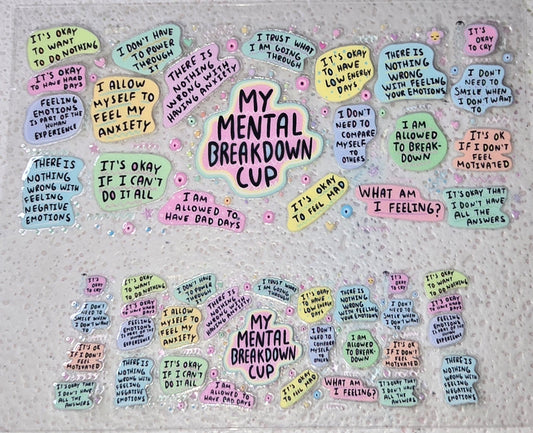 IT'S OKAY
TO WANT
TO DO NOTHING
I DON'T HAVE
TO POWER
THROUGH
IT
THERE IS
NOTHING
WRONG WITH
HAVING ANXIETY
I TRUST WHAT
I AM GOING
THROUGH
IT'S OKAY
TO HAVE
LOW ENERGY
DAYS
THERE IS
NOTHING
WRONG
WITH FEELING
YOUR EMOTIONS
IT'S
OKAY
TO CRY
IT'S OKAY
TO HAVE HARD
DAYS
I ALLOW
MYSELF TO
FEEL MY
ANXIETY
I DON'T
NEED TO
SMILE WHEN
I DON'T WANT
TO
FEELING
EMOTIONS
IS PART OF THE
HUMAN
EXPERIENCE
MY
MENTAL
BREAKDOWN
CUP
I DON'T
NEED TO
COMPARE
MYSELF
TO
OTHERS
I AM
ALLOWED
TO BREAK-
DOWN
IT'S OK
IF I DON'T
FEEL
MOTIVATED
THERE IS
NOTHING
WRONG WITH
FEELING
NEGATIVE
EMOTIONS
IT'S OKAY
IF I CAN'T
DO IT ALL
I AM
ALLOWED TO
HAVE BAD DAYS
IT'S OKAY
TO FEEL MAD
WHAT AM
I FEELING?
IT'S OKAY THAT
I DON'T HAVE
ALL THE
ANSWERS
IT'S
OKAY
TO CRY
IT'S OKAY
TO WANT
TO DO NOTHING
I DON'T HAVE
TO POWER
THROUGH
IT
THERE IS
NOTHING
WRONG WITH
HAVING ANXIETY
I TRUST WHAT
I AM GOING
THROUGH
IT'S OKAY
TO HAVE
LOW ENERGY
DAYS
THERE IS
NOTHING
WRONG
WITH FEELING
YOUR EMOTIONS
IT'S
OKAY
TO CRY
IT'S OKAY
TO WANT
TO DO NOTHING
I DON'T
NEED TO
SMILE WHEN
I DON'T WANT
TO
IT'S OKAY
TO HAVE HARD
DAYS
I ALLOW
MYSELF TO
FEEL MY
ANXIETY
I DON'T
NEED TO
SMILE WHEN
I DON'T WANT
TO
IT'S OKAY
TO HAVE HARD
DAYS
FEELING
EMOTIONS
IS PART OF THE
HUMAN
EXPERIENCE
MY
MENTAL
BREAKDOWN
CUP
I DON'T
NEED TO
COMPARE
MYSELF
TO
OTHERS
I AM
ALLOWED
TO BREAK-
DOWN
FEELING
EMOTIONS
IS PART OF THE
HUMAN
EXPERIENCE
IT'S OK
IF I DON'T
FEEL
MOTIVATED
IT'S OK
IF I DON'T
FEEL
MOTIVATED
THERE IS
NOTHING
WRONG WITH
FEELING
NEGATIVE
EMOTIONS
IT'S OKAY
IF I CAN'T
DO IT ALL
THERE IS
NOTHING
WRONG WITH
FEELING
NEGATIVE
EMOTIONS
IT'S OKAY THAT
I DON'T HAVE
ALL THE
ANSWERS
I AM
ALLOWED TO
HAVE BAD DAYS
IT'S OKAY
TO FEEL MAD
WHAT AM
I FEELING?
IT'S OKAY THAT
I DON'T HAVE
ALL THE
ANSWERS